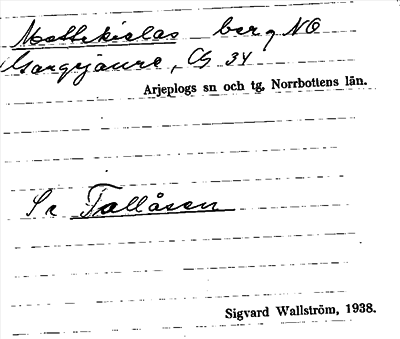 Mattekielas berg NO
Gargyaure, Cg 34
Arjeplogs sn och tg, Norrbottens län.
Se Tallåsen
Sigvard Wallström, 1938.